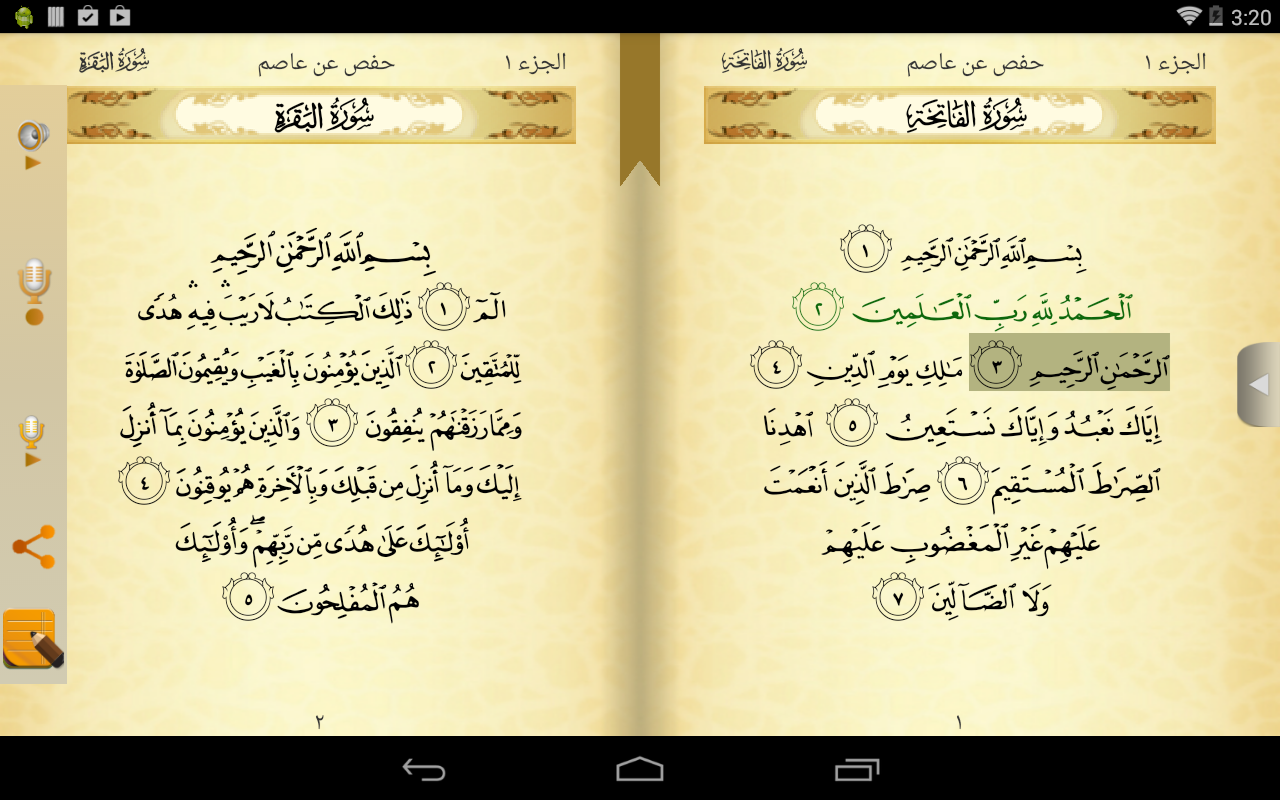 3:20
الجزء ١ حفص عن عاصم سُورَةُ الفَاتِحَةِ
سُورَةُ الفَاتِحَةِ
بِسْمِ ٱللَّهِ ٱلرَّحْمَٰنِ ٱلرَّحِيمِ ١
ٱلْحَمْدُ لِلَّهِ رَبِّ ٱلْعَٰلَمِينَ ٢
ٱلرَّحْمَٰنِ ٱلرَّحِيمِ ٣ مَٰلِكِ يَوْمِ ٱلدِّينِ ٤
إِيَّاكَ نَعْبُدُ وَإِيَّاكَ نَسْتَعِينُ ٥ ٱهْدِنَا
ٱلصِّرَٰطَ ٱلْمُسْتَقِيمَ ٦ صِرَٰطَ ٱلَّذِينَ أَنْعَمْتَ
عَلَيْهِمْ غَيْرِ ٱلْمَغْضُوبِ عَلَيْهِمْ
وَلَا ٱلضَّآلِّينَ ٧
١
الجزء ١ حفص عن عاصم سُورَةُ البَقَرَةِ
سُورَةُ البَقَرَةِ
بِسْمِ ٱللَّهِ ٱلرَّحْمَٰنِ ٱلرَّحِيمِ
الٓمٓ ١ ذَٰلِكَ ٱلْكِتَٰبُ لَا رَيْبَ ۛ فِيهِ ۛ هُدًى
لِّلْمُتَّقِينَ ٢ ٱلَّذِينَ يُؤْمِنُونَ بِٱلْغَيْبِ وَيُقِيمُونَ ٱلصَّلَوٰةَ
وَمِمَّا رَزَقْنَٰهُمْ يُنفِقُونَ ٣ وَٱلَّذِينَ يُؤْمِنُونَ بِمَآ أُنزِلَ
إِلَيْكَ وَمَآ أُنزِلَ مِن قَبْلِكَ وَبِٱلْأَخِرَةِ هُمْ يُوقِنُونَ ٤
أُو۟لَٰٓئِكَ عَلَىٰ هُدًى مِّن رَّبِّهِمْ ۖ وَأُو۟لَٰٓئِكَ
هُمُ ٱلْمُفْلِحُونَ ٥
٢